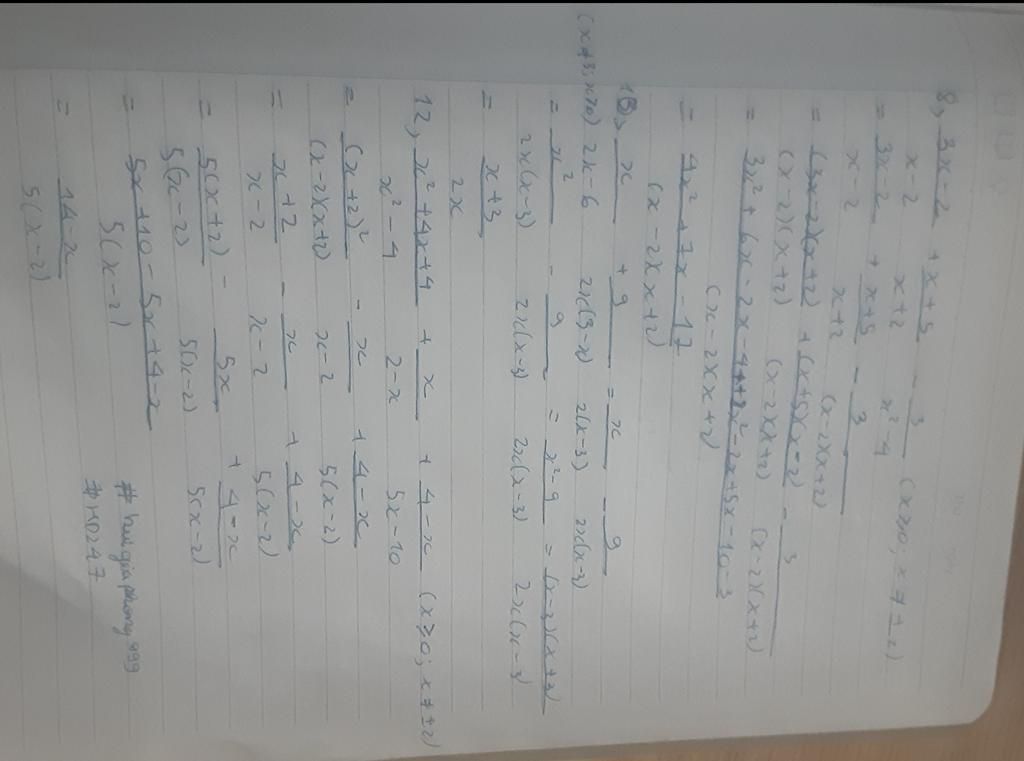 8, (3x-2)/(x-2) + (x+5)/(x+2) - 3/(x²-4) (x≥0; x≠±2)
= (3x-2)/(x-2) + (x+5)/(x+2) - 3/((x-2)(x+2))
= ((3x-2)(x+2))/((x-2)(x+2)) + ((x+5)(x-2))/((x-2)(x+2)) - 3/((x-2)(x+2))
= (3x²+6x-2x-4+x²-2x+5x-10-3)/((x-2)(x+2))
= (4x²+7x-17)/((x-2)(x+2))
x/(2x-6) + 9/(2x(3-x)) = x/(2(x-3)) - 9/(2x(x-3))
= x²/(2x(x-3)) - 9/(2x(x-3)) = (x²-9)/(2x(x-3)) = ((x-3)(x+3))/(2x(x-3))
= (x+3)/(2x)
12, (x²+4x+4)/(x²-4) + x/(2-x) + (4-x)/(5x-10) (x≥0; x≠±2)
= (x+2)²/((x-2)(x+2)) - x/(x-2) + (4-x)/(5(x-2))
= (x+2)/(x-2) - x/(x-2) + (4-x)/(5(x-2))
= (5(x+2))/(5(x-2)) - 5x/(5(x-2)) + (4-x)/(5(x-2))
= (5x+10-5x+4-x)/(5(x-2))
= (14-x)/(5(x-2))
# huugiaphong999
# HD247